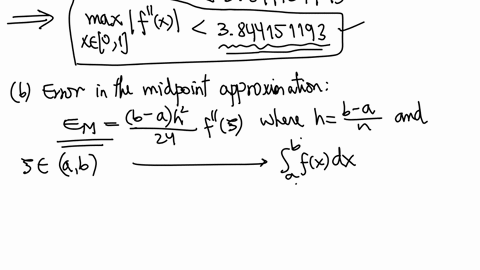 ⟹ max |f''(x)| < 3.844151193
x∈[0,1]
(b) Error in the midpoint approximation:
E_M = (b-a)h²/24 f''(ξ) where h = b-a/n and
ξ ∈ (a,b) ⟶ ∫_a^b f(x)dx